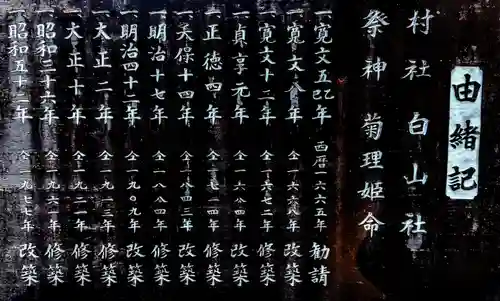 由緒記
村社 白山社
祭神 菊理姫命
一、寛文五巳年 西暦一六六五年 勧請
一、寛文八年 仝一六六八年 改築
一、寛文十二年 仝一六七二年 修築
一、貞享元年 仝一六八四年 改築
一、正徳四年 仝一七一四年 修築
一、天保十四年 仝一八四三年 改築
一、明治十七年 仝一八八四年 修築
一、明治四十二年 仝一九〇九年 改築
一、大正二年 仝一九一三年 修築
一、大正十年 仝一九二一年 修築
一、昭和三十六年 仝一九六一年 修築
一、昭和五十二年 仝一九七七年 改築